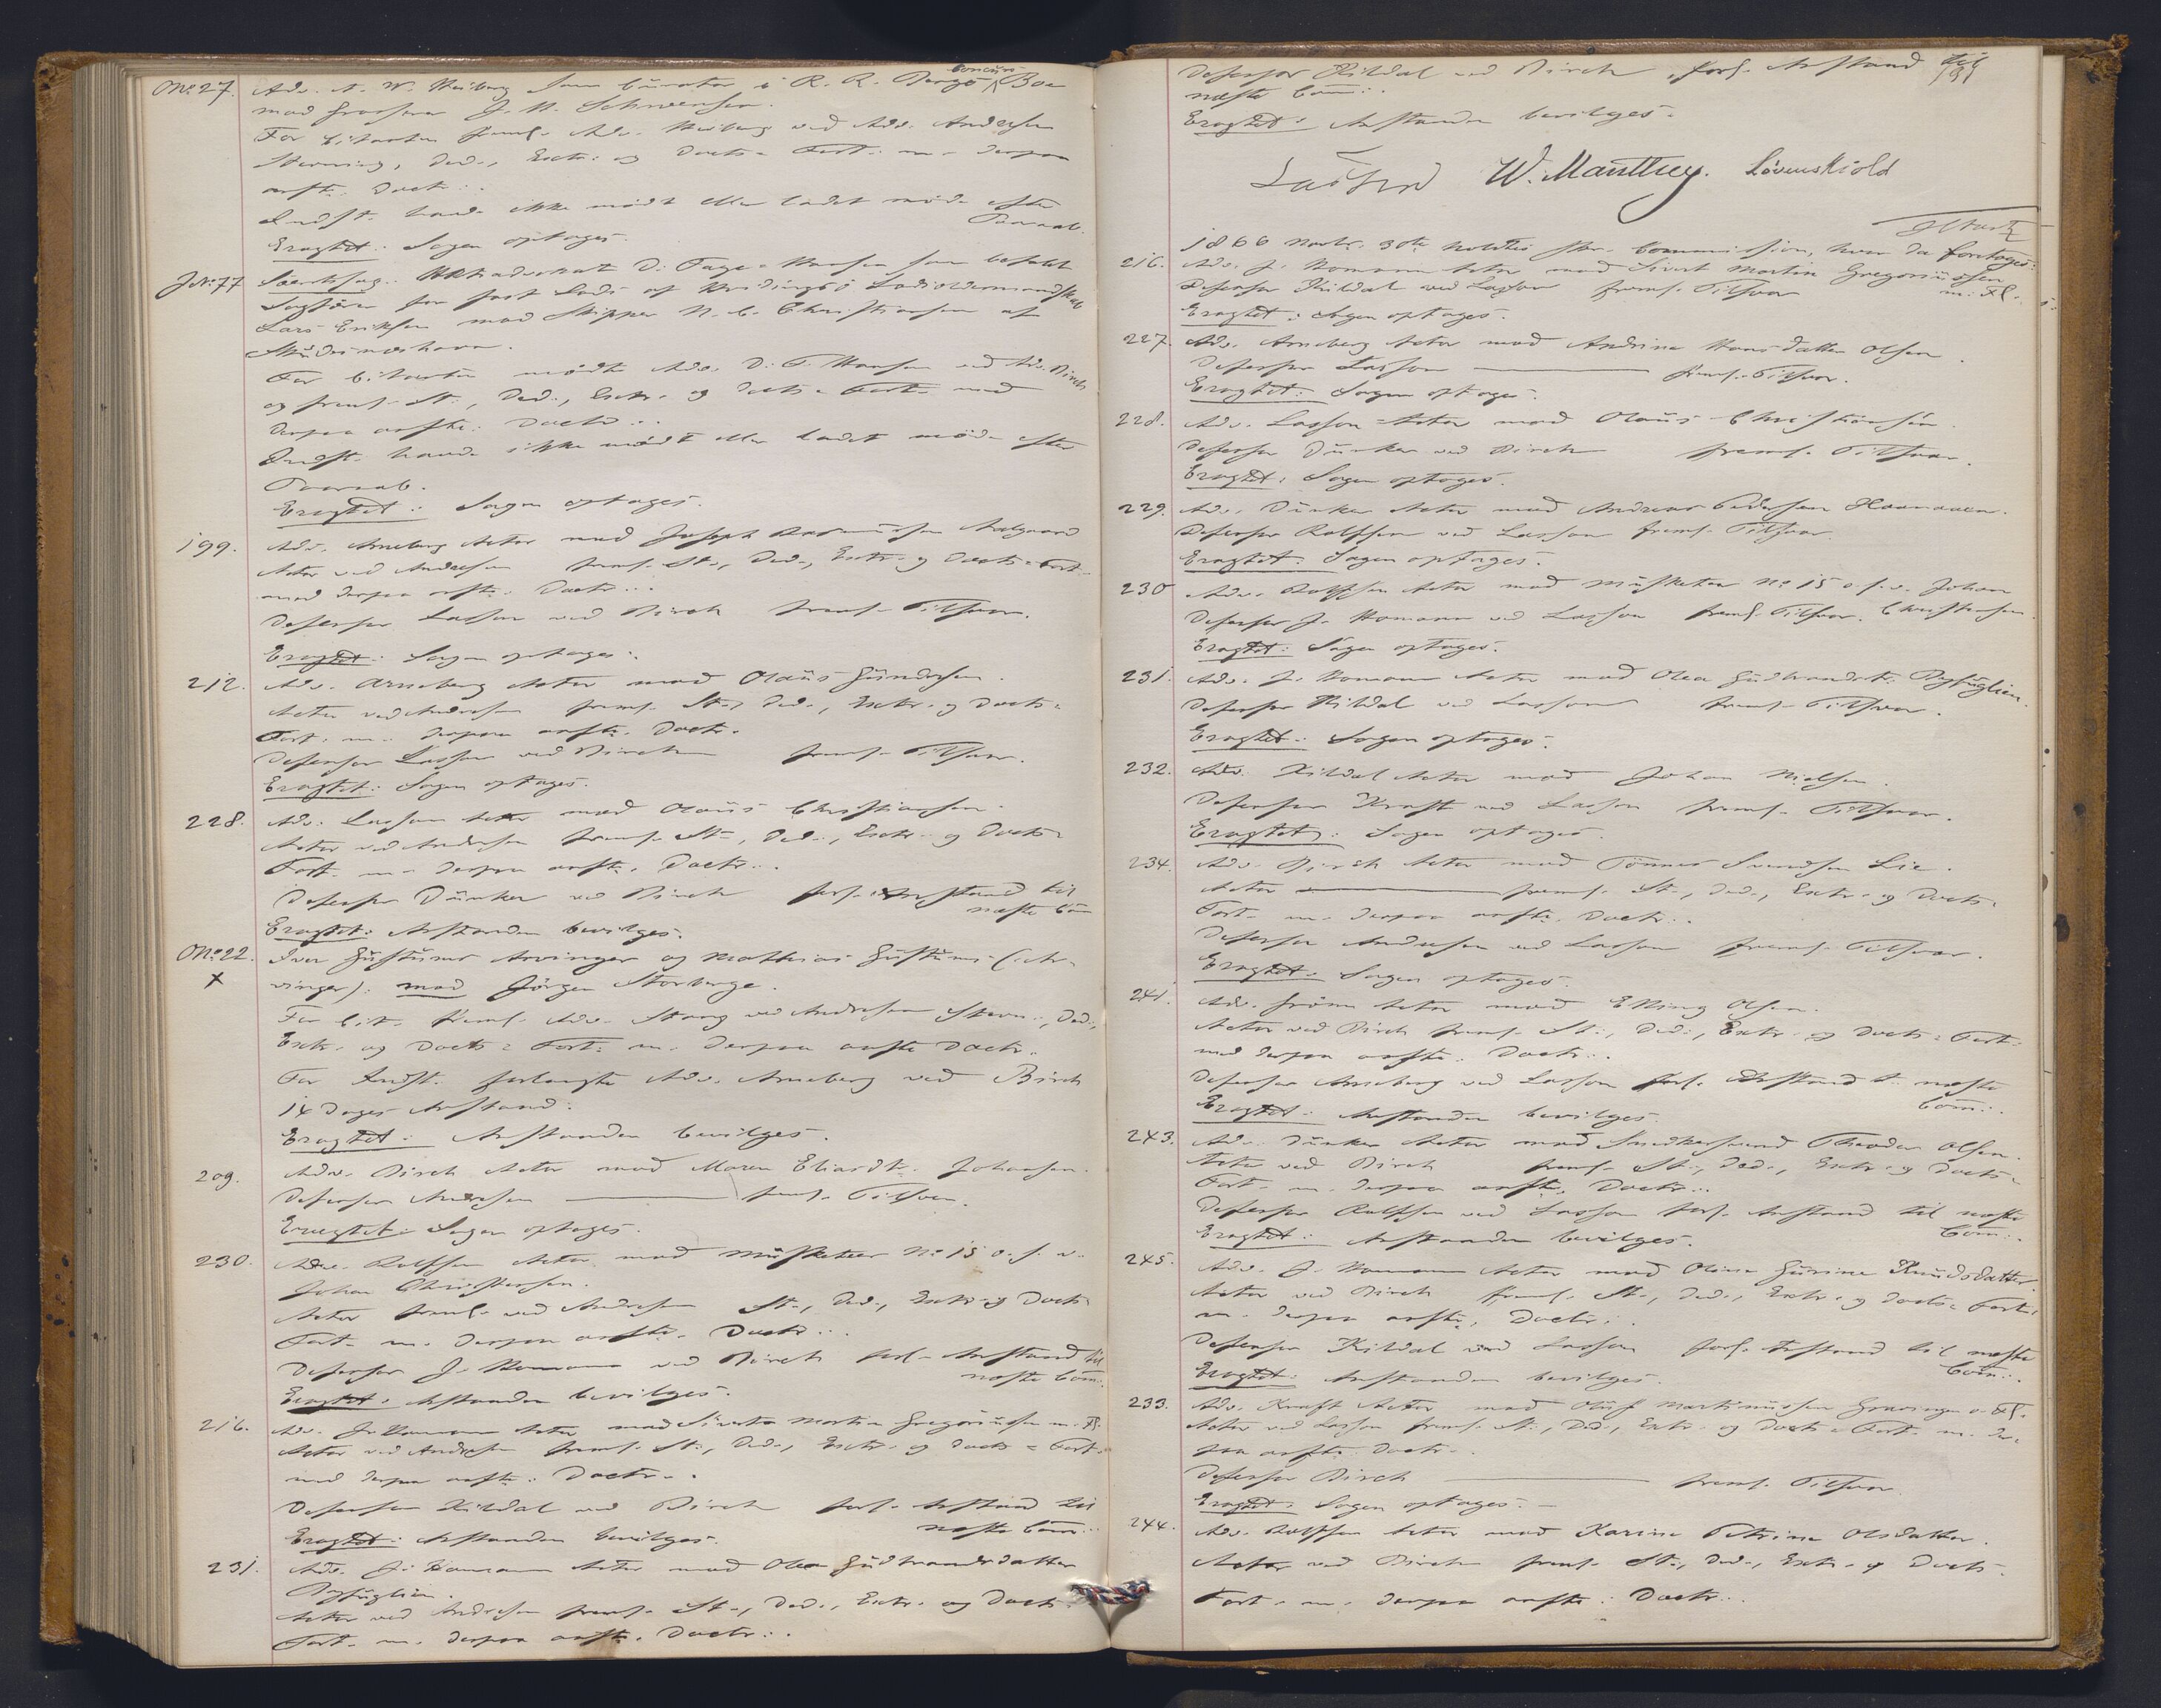 No 27. Adv. A. W. Heiberg som Curator i R. R. Bergs Concurs Boe
mod J. N. Schwensen.
For Citanten frems. Adv. Heiberg ved Adv. Andresen
Stevning, Ded., Extr. og Docts = Fort. m. derpaa
anfte. Doctr..
Indst. havde ikke mødt eller ladet møde efter
Paaraab.
Eragtet: Sagen optages.
J No 77 Advokat D. Fage = Hansen som befalet
Sagfører for fast Lods af Lodsoldermandskab
Lars Eriksen mod Skipper N. C. Christiansen af
Skudesneshavn.
For Citanten mødte Adv. D. F. Hansen ved Adv. Birch
og frems. St., Ded., Extr. og Docts = Fort. med
derpaa anfte. Doctr..
Indst. havde ikke mødt eller ladet møde efter
Paaraab.
Eragtet: Sagen optages.
199. Adv. Arneberg Actor mod Joseph Rasmussen Aalgaard
Actor ved Andresen frems. St., Ded., Extr. og Docts = Fort.
med derpaa anfte. Doctr...
Defensor Lasson ved Birch frems. Tilsvar.
Eragtet: Sagen optages.
212. Adv. Arneberg Actor mod Olaus Gundersen.
Actor ved Andresen frems. St., Ded., Extr. og Docts =
Fort. m. derpaa anfte. Doctr.
Defensor Lasson ved Birch frems. Tilsvar.
Eragtet: Sagen optages.
228. Adv. Lasson Actor mod Olaus Christiansen.
Actor ved Andresen frems. St., Ded., Extr. og Docts =
Fort. m. derpaa anfte. Doctr..
Defensor Dunker ved Birch forl. Anstand til
næste Com
Eragtet: Anstanden bevilges.
No 22. Iver Gustums Arvinger og Mathias Gustums (Ar=
X vinger): mod Jörgen Storberge.
For Cit. frems. Adv. Stang ved Andresen Stevn., Ded.,
Extr. og Docts = Fort. m. derpaa anfte Doctr.
For Indst. forlangte Adv. Arneberg ved Birch
14 Dages Anstand.
Eragtet: Anstanden bevilges.
209. Adv. Birch Actor mod Maren Eliasdt. Johansen.
Defensor Andresen ——— frems. Tilsvar.
Eragtet: Sagen optages.
230. Adv. Rolfsen Actor mod Musketeer No 15 o. s. v.
Johan Christensen.
Actor frems. ved Andresen St., Ded., Extr. og Docts =
Fort. m. derpaa anfte. Doctr..
Defensor J. Homann ved Birch forl. Anstand til
næste Com:.
Eragtet: Anstanden bevilges.
216. Adv. J. Homann Actor mod Sivert Martin Gregoriussen m. Fl.
Actor ved Andresen frems. St., Ded., Extr. og Docts = Fort.
med derpaa anfte. Doctr..
Defensor Kildal ved Birch forl. Anstand til
næste Com:.
Eragtet: Anstanden bevilges.
231. Adv. J. Homann Actor mod Olea Gudbrandsdatter
Bysuglien.
Actor ved Andresen frems. St., Ded., Extr. og Docts =
Fort. m. derpaa anfte. Doctr..
Defensor Kildal ved Birch forl. Anstand til
næste Com:.
Eragtet: Anstanden bevilges.
W. Manthey. Løvenskiold
1866 Novbr. 30te holdtes Commission, hvor da foretoges:
216. Adv. J. Homann Actor mod Sivert Martin Gregoriussen
Defensor Kildal ved Lasson frems. Tilsvar m. Fl.
Eragtet: Sagen optages.
227. Adv. Arneberg Actor mod Andrine Hansdatter Olsen.
Defensor Lasson ——— frems. Tilsvar.
Eragtet: Sagen optages.
228. Adv. Lasson Actor mod Olaus Christiansen.
Defensor Dunker ved Birch frems. Tilsvar.
Eragtet: Sagen optages.
229. Adv. Dunker Actor mod Andreas Pedersen
Defensor Rolfsen ved Lasson frems. Tilsvar.
Eragtet: Sagen optages.
230 Adv. Rolfsen Actor mod Musketeer No 15 o. s. v. Johan
Defensor J. Homann ved Lasson frems. Tilsvar. Christensen.
Eragtet: Sagen optages.
231. Adv. J. Homann Actor mod Olea Gudbrandsdt. Bysuglien.
Defensor Kildal ved Lasson frems. Tilsvar.
Eragtet: Sagen optages.
232. Adv. Kildal Actor mod Johan Nielsen.
Defensor Kraft ved Lasson frems. Tilsvar.
Eragtet: Sagen optages.
234. Adv. Birch Actor mod Tönnes Svendsen Lie.
Actor ——— frems. St., Ded., Extr. og Docts =
Fort. m. derpaa anfte. Doctr..
Defensor Andresen ved Lasson frems. Tilsvar.
Eragtet: Sagen optages.
241. Adv. Grönn Actor mod Elling Olsen.
Actor ved Birch frems. St., Ded., Extr. og Docts = Fort.
med derpaa anfte. Doctr..
Defensor Arneberg ved Lasson forl. Anstand t. næste
Com:.
Eragtet: Anstanden bevilges.
243. Adv. Dunker Actor mod Snedkersvend Theodor Olsen.
Actor ved Birch frems. St., Ded., Extr. og Docts =
Fort. m. derpaa anfte. Doctr..
Defensor Rolfsen ved Lasson forl. Anstand til næste
Com:.
Eragtet: Anstanden bevilges.
245. Adv. J. Homann Actor mod Oline Gurine Knudsdatter.
Actor ved Birch frems. St., Ded., Extr. og Docts = Fort.
m. derpaa anfte. Doctr..
Defensor Kildal ved Lasson forl. Anstand til næste
Com:.
Eragtet: Anstanden bevilges.
233. Adv. Kraft Actor mod Oluf Martinussen o. Fl.
Actor ved Lasson frems. St., Ded., Extr. og Docts = Fort. m. der=
paa anfte. Doctr..
Defensor Birch ——— frems. Tilsvar.
Eragtet: Sagen optages.
244. Adv. Rolfsen Actor mod Karine Petrine Olsdatter.
Actor ved Birch frems. St., Ded., Extr. og Docts =
Fort. m. derpaa anfte. Doctr..